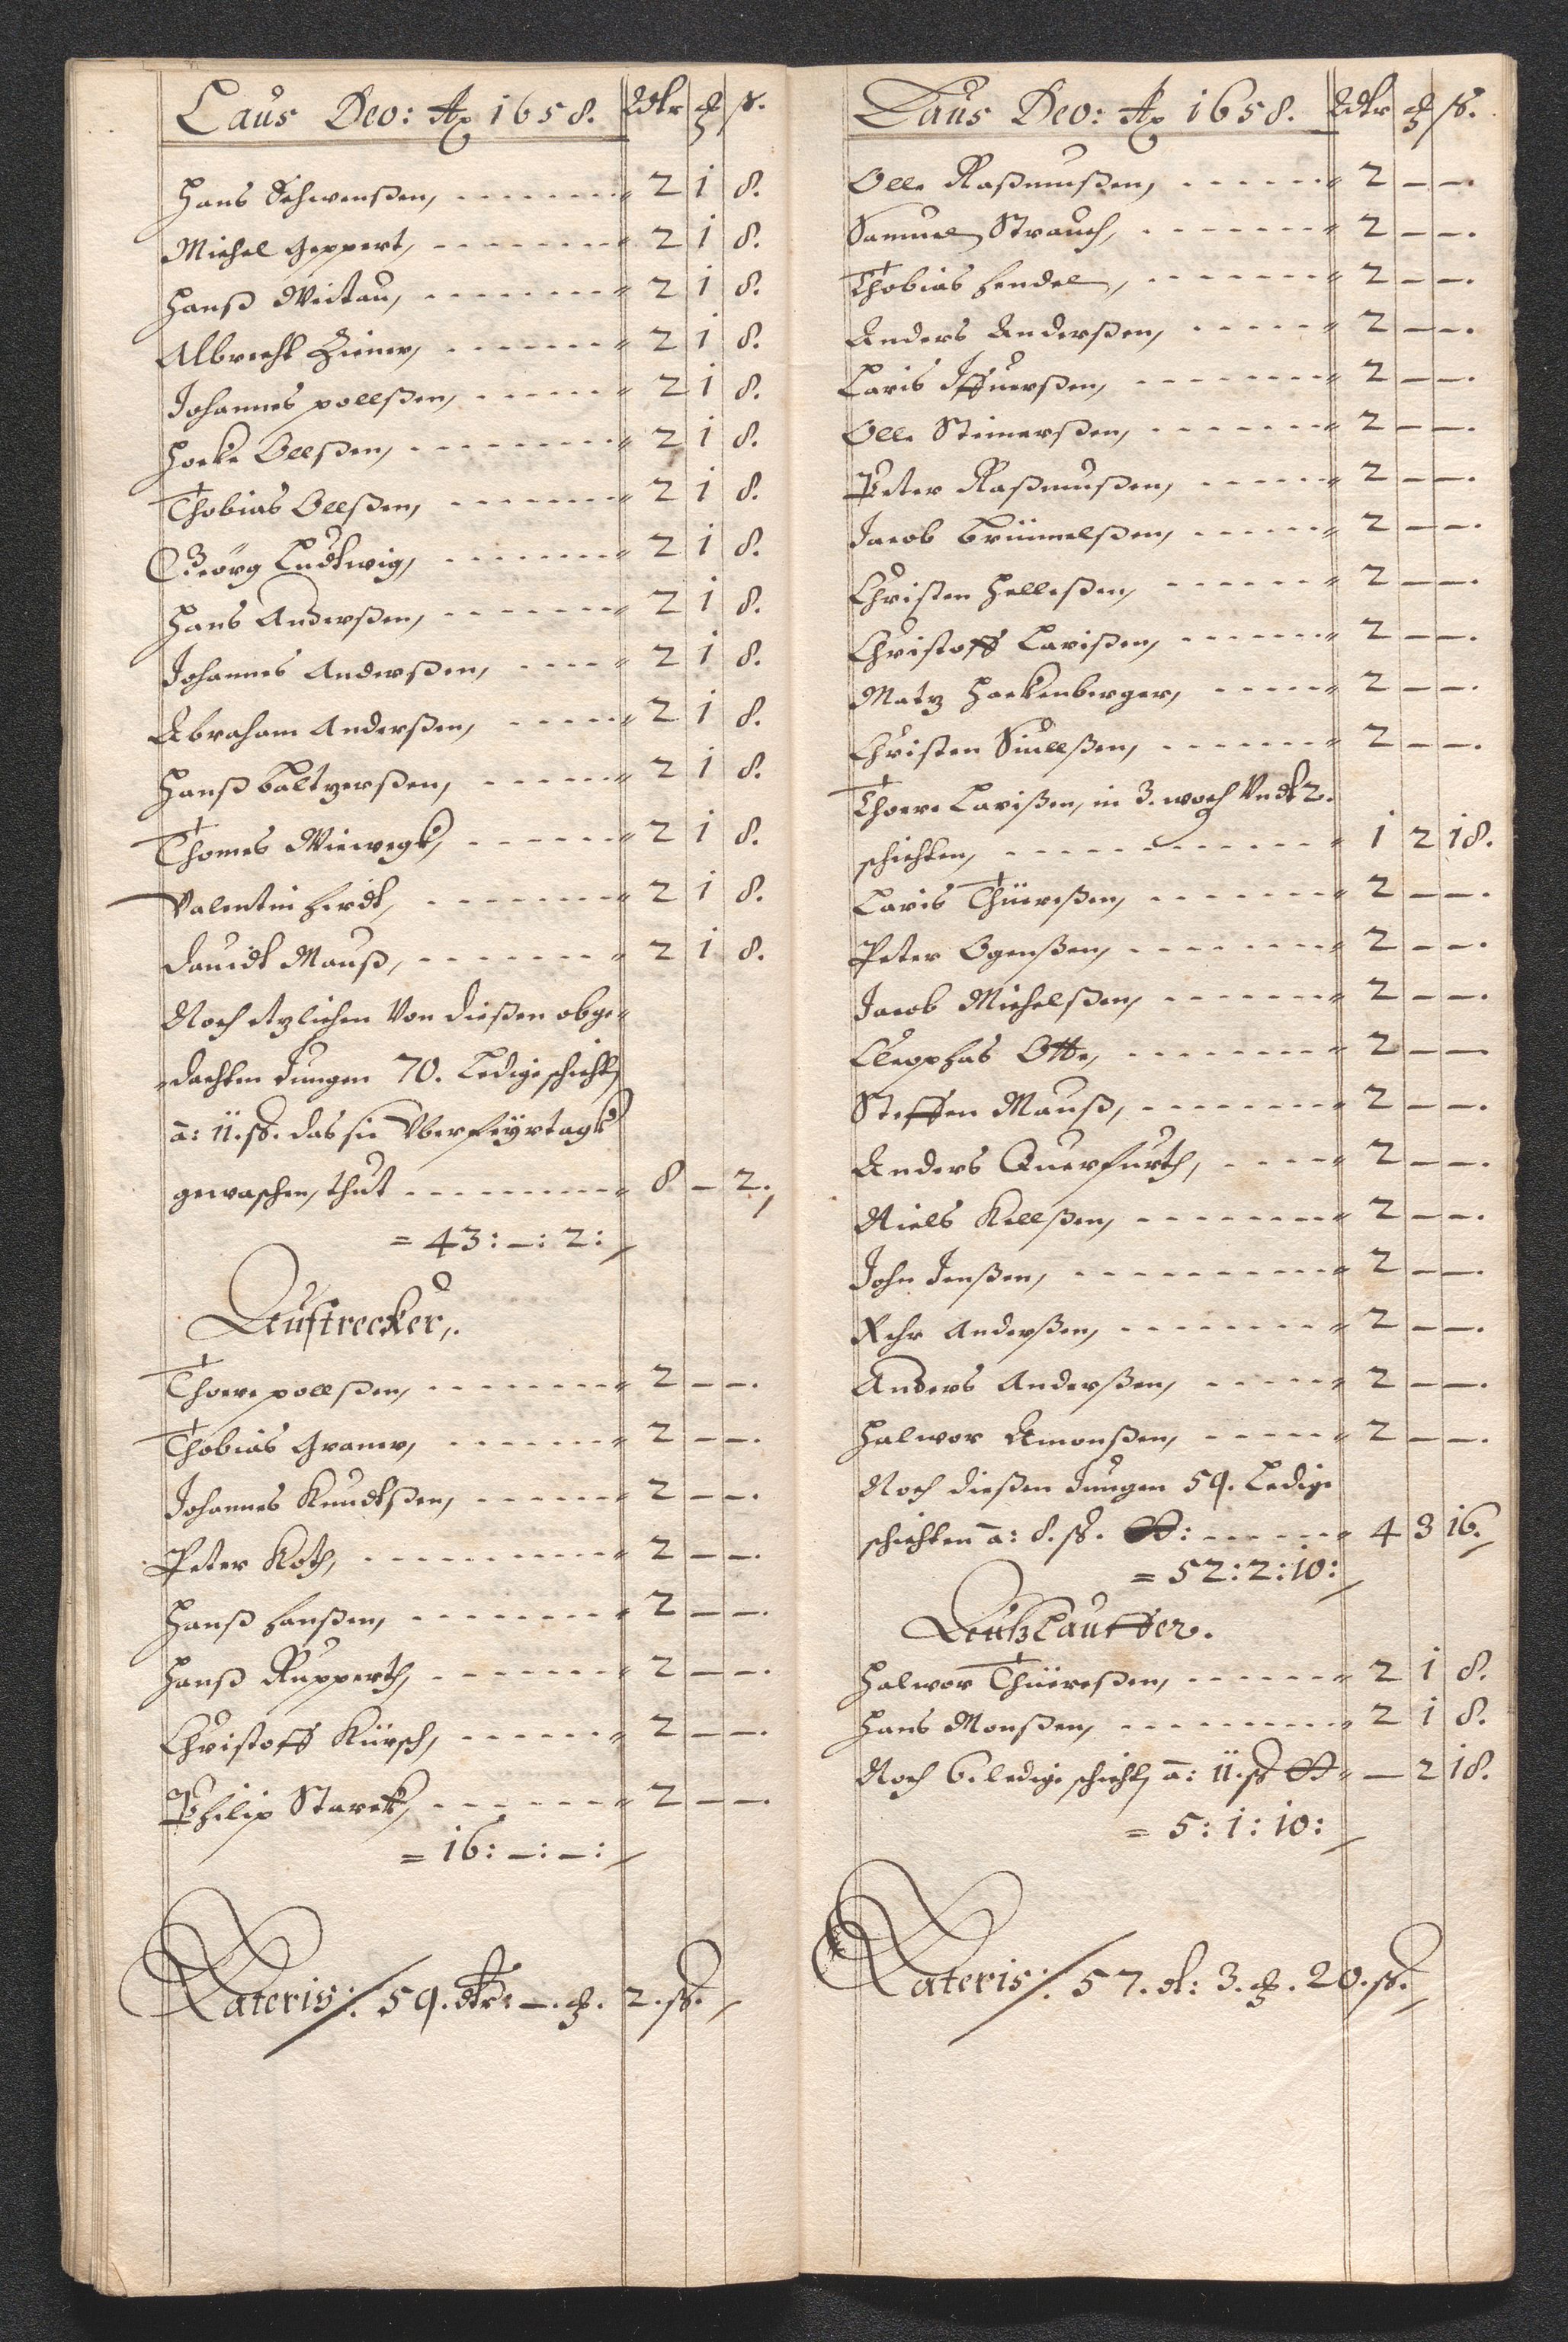 Laus Deo: Ao 1658. Rdlr ꝗ ß.
Hans Schwenßen, 2 1 8.
Michel Geppert, 2 1 8.
Hanß Weitau, 2 1 8.
Albrecht Ziener, 2 1 8.
Johannes pollßen, 2 1 8.
Hocke Ollßen, 2 1 8.
Thobias Ollßen, 2 1 8.
Geörg Ludtwig, 2 1 8.
Hans Anderßen, 2 1 8.
Johannes Anderßen, 2 1 8.
Abraham Anderßen, 2 1 8.
Hanß baltzerßen, 2 1 8.
Thomes Wiewegk, 2 1 8.
Valentin herdt, 2 1 8.
Dauidt Mauß, 2 1 8.
Noch etzlichen Von dießen obge-
dachten Jungen 70. Ledige schicht,
a: 11. ß. das sie Vber feyrtagk
gewaschen, thut 8 – 2.
= 43: –: 2:
Außtrecker.
Thore pollßen, 2 – –.
Thobias Gramer, 2 – –.
Johannes Knudtßen, 2 – –.
Peter Koth, 2 – –.
Hanß hanßen, 2 – –.
Hanß Rupperth, 2 – –.
Christoff Kürsch, 2 – –.
Philip Starck, 2 – –.
= 16: –: –:
Lateris: 59. dlr: –. ꝗ. 2. ß.
Laus Deo: Ao 1658. Rdlr ꝗ ß.
Olle Raßmußen, 2 – –.
Samuel Strauch, 2 – –.
Thobias hendel, 2 – –.
Anders Anderßen, 2 – –.
Laris Iffuerßen, 2 – –.
Olle Steinerßen, 2 – –.
Peter Raßmußen, 2 – –.
Jacob brümmelßen, 2 – –.
Christen Helleßen, 2 – –.
Christoff Larißen, 2 – –.
Matz Hackenberger, 2 – –.
Christen Siullßen, 2 – –.
Thore Larißen, in 3. woch Vndt 2.
schichten, 1 2 18.
Laris Thüreßen, 2 – –.
Peter Ogenßen, 2 – –.
Jacob Michelßen, 2 – –.
Cleophas Otte, 2 – –.
Steffen Mauß, 2 – –.
Anders Querfurth, 2 – –.
Niels Kellßen, 2 – –.
John Jenßen, 2 – –.
Rehr Anderßen, 2 – –.
Anders Anderßen, 2 – –.
Halwor Amonßen, 2 – –.
Noch dießen Jungen 59. Ledige
schichten a: 8. ß. tt: 4 3 16.
= 52: 2: 10:
Außlauffer.
Halwor Thüreßen, 2 1 8.
Hans Monßen, 2 1 8.
Noch 6. ledige schicht, a: 11. ß tt – 2 18.
= 5: 1: 10:
Lateris: 57. dl: 3. ꝗ. 20. ß.